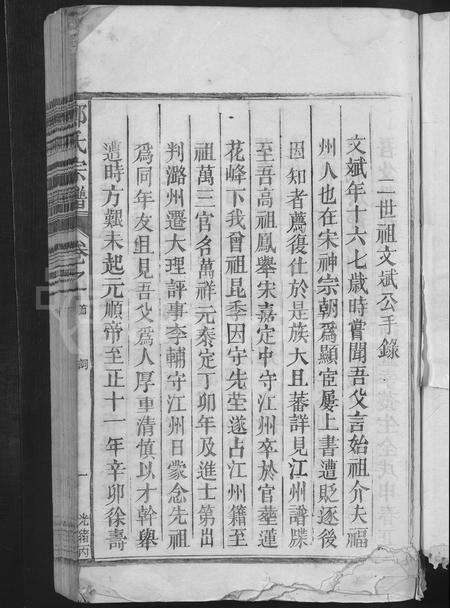 二世祖文斌公手錄
文斌年十六七歲時嘗聞吾父言始祖介夫福
州人也在宋神宗朝爲顯宦屢上書遭貶逐後
因知者薦復仕於是族大且蕃詳見江州譜牒
至吾高祖鳳舉宋嘉定中守江州卒於官塟蓮
花峰下我曾祖昆季因守先塋遂占江州籍至
祖萬三官名萬祥元泰定丁卯年及進士第出
判潞州遷大理評事李輔守江州日蒙念先祖
爲同年友且見吾父爲人厚重清慎以才幹舉
遭時方艱未起元順帝至正十一年辛卯徐壽
氏宗譜
卷之
一
光緒丙